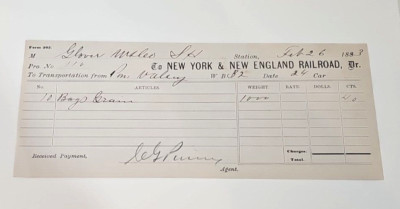 Form 103.
M Glover Station, Feb 26 1883
Pro No. 110 To NEW YORK & NEW ENGLAND RAILROAD, Dr.
To Transportation from W B 82 Date 26 Car
No. ARTICLES WEIGHT RATE DOLLS. CTS.
10 Bags Grain 1000 40
Charges
Received Payment, Total.
Agent.